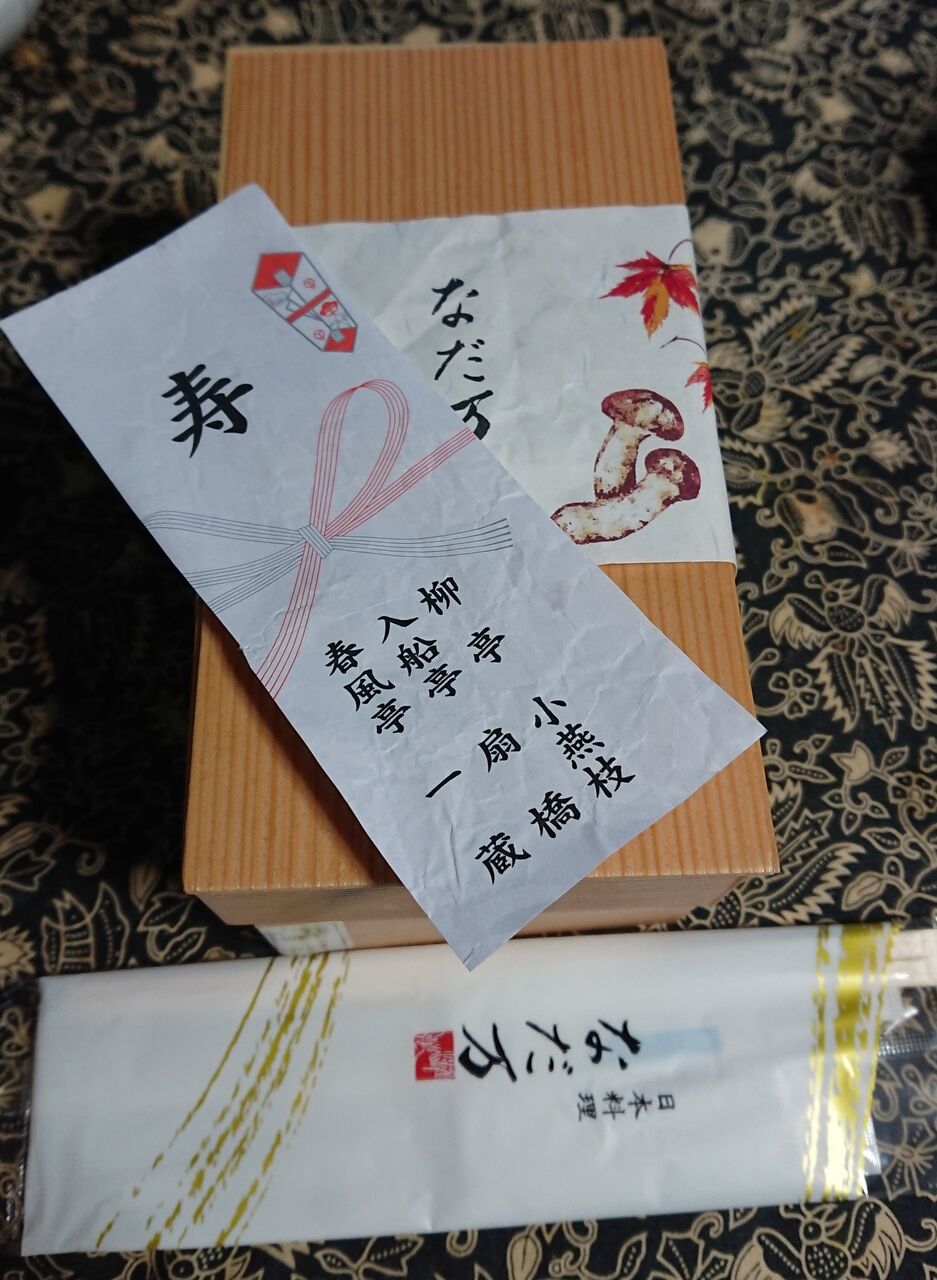 なだ万
寿
柳亭 小燕枝
入船亭 扇橋
春風亭 一蔵
日本料理
なだ万